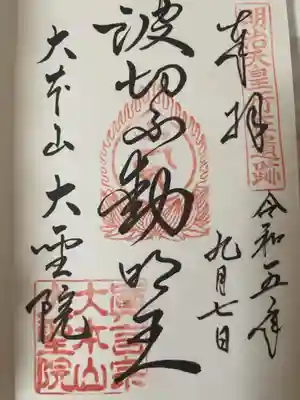 明治天皇行在遺跡
奉拝
令和五年
九月七日
波切不動明王
大本山大聖院
眞言宗
大本山
大聖院